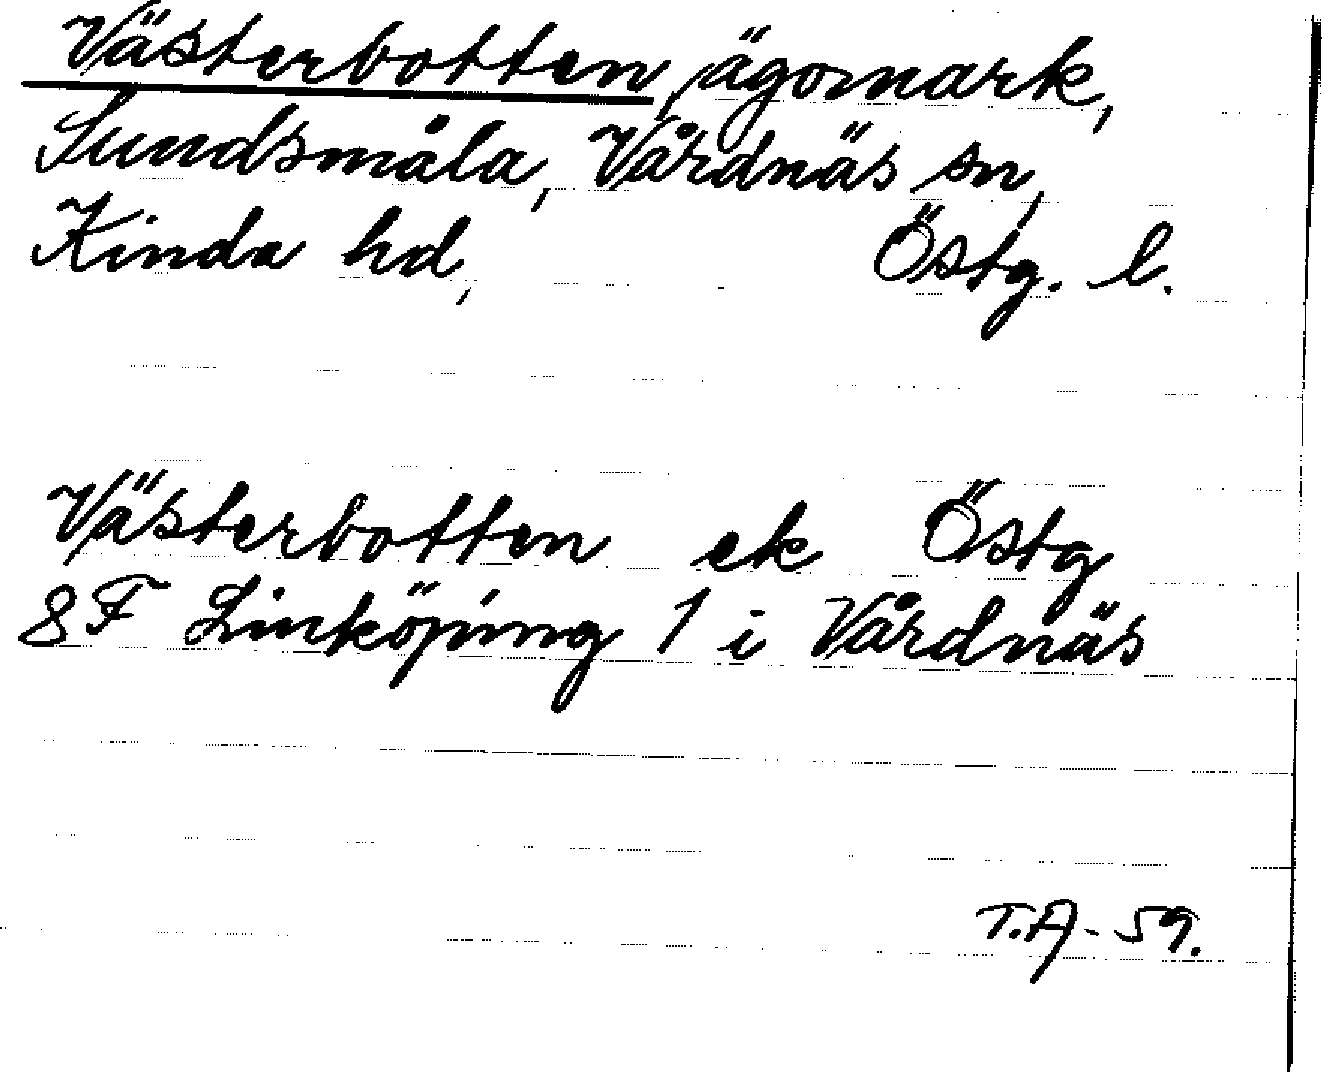 Västerbotten, ägomark,
Sundsmåla, Vårdnäs sn,
Kinda hd, Östg. l.
Västerbotten ek Östg
8F Linköping 1 i Vårdnäs
T.A-59.